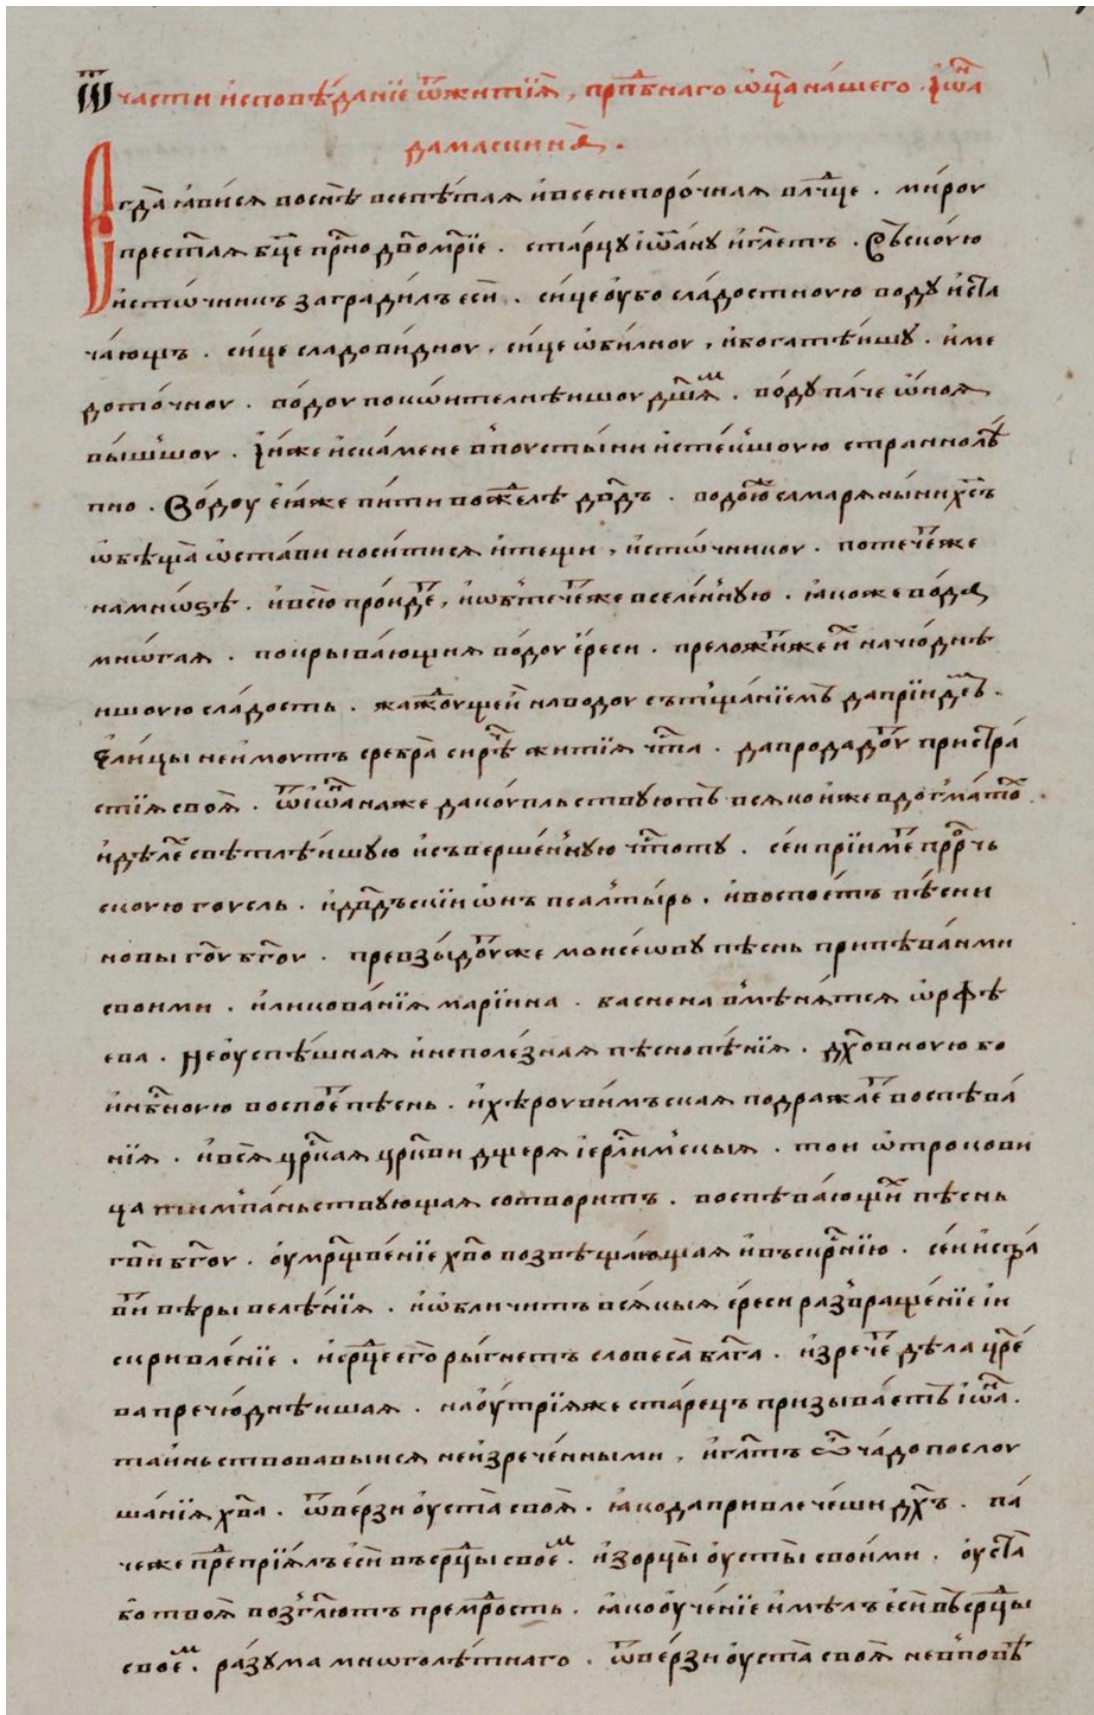 Ѿ части исповѣ́данїе ѿжитїѧ̑, прпⷣбнаго ѡц҃а на́шего їѡⷩ҇а
дамаскина̑.
Егда̀ ꙗви́сѧ воснѣ̀ всепѣ́таѧ ивсенепоро́чнаѧ влⷣчце. ми́роу
прест҃аѧ бцⷣе прⷭ҇но дв҃омр҃їе. ста́рцу іѡа́ну иглетъ. Ѻ҆́ вскоую
исто́чникъ заградилъ еси̑. сицеоубо сла́достною воду истⷪ҇а
ча́ющъ. си́це сладови́дноу. си́це ѡби́лноу, ибогатѣ́ишу. и́ме
дото́чноу. во́доу покѡ́ителнѣишоу дш҃аⷨ. во́ду па́че ѡноѧ
вы́шшоу. Ꙗже искамене впоусты́ни исте́кшоую страннолѣ
пно. Во́доу еꙗже пи́ти вожⷣелѣ дв҃дъ. водоюⷤ самарѧны́ни хс҃ъ
ѡбѣща̀ ѡста́ви носи́тисѧ итещи, исто́чникоу. потече́тже
намно́ѕѣ. ивсю̀ про́идетⷮ, иѡбтече́тже вселе́нную. ꙗкоже во́да
мно́гаѧ. покрыва́ющиѧ во́доу е́реси. преложи́тже и҆ начю́днѣ
ишоую сла́дость. жа́ждоущеи наводоу съ тща́нїемъ даприидетъ.
Ели́цы неи́моутъ сребра̀ сирѣⷱ҇ житїѧ чⷭ҇та. дапродадоутⷮ пристра́
стїѧ своѧ̑. ѿїѡⷩ҇а наже дакоу́пльствуютъ всѧкоиже вдогма́тоⷯ.
идѣ́леⷯ свѣтлѣ́ишую исъверше́нную чⷭ҇тоту. се́и прїиметⷮ прⷪ҇рчь
скоую гоусль. идв҃дъскїи ѡнъ псалты́рь. ивоспое́тъ пѣ́сни
новы гⷭ҇оу бг҃оу. превзы́доутже моисе́ѡву пѣснь припѣва́ими
своими. иликова́нїѧ марїина. баснена вмѣнѧ́тсѧ ѡрфѣ
ева. Неоуспѣ́шнаѧ инеполе́знаѧ пѣснопѣ́нїѧ. дх҃овноую бо
инбⷭ҇ноую воспое́тⷮ пѣснь. ихѣроуви́мъскаѧ подражае́тⷮ воспѣва́
нїѧ. ивсѧ̑ црк҃аѧ црк҃ви дще́рѧ їерⷭ҇лимскыѧ. тои ѡтрокови
ца тимпа́ньствующаѧ сотворитъ. воспѣва́ющи пѣснь
гв҃и бг҃оу. оумрщвле́нїе хв҃о возвѣща́ющаѧ ивъскрⷭ҇нїю. се́и испра́
витⷮ вѣры велѣ́нїѧ. иѡбличитъ всѧ́кыѧ е́реси развраще́нїе ін
скривле́нїе. исрⷣце его̀ ры́гнетъ словеса̀ блг҃а. изрече́тⷮ дѣ́ла цр҃е
ва пречю́днѣишаѧ. наоу́трїѧже ста́рецъ призыва́етъ іѡⷩ҇а.
таи́ньствовавыисѧ неизрече́нными, иглⷭ҇тъ ѽ ча́до послоу
ша́нїѧ хв҃а. ѿве́рзи оуста̀ своѧ̑. ꙗкода привлече́ши дх҃ъ. па́
чеже пⷬ҇епрїѧ́лъ еси̑ въсрⷣцы своеⷨ. изорцы̀ оусты̀ свои́ми. оустⷭ҇а
бо твоѧ̑ возгл҃ютъ премⷣрость. ꙗкооуче́нїе имѣ́лъ еси̑ въсрⷣцы
своеⷨ. ра́зума многолѣ́тнаго. ѿве́рзи оуста̀ своѧ̑ невпо́вѣ